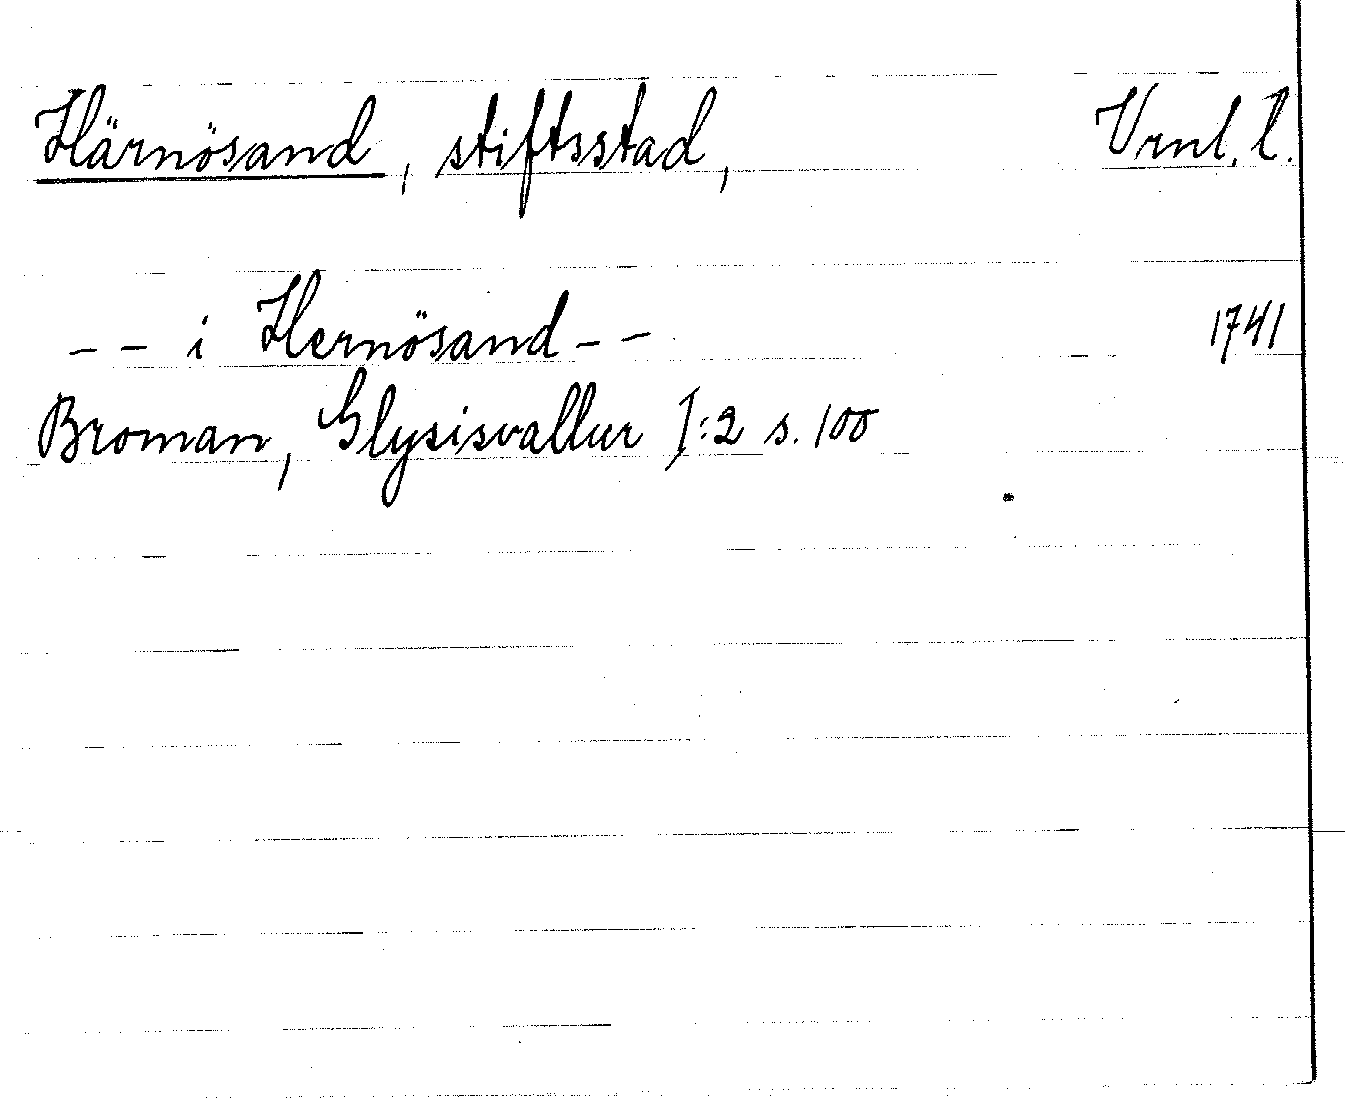 Härnösand, stiftsstad, Vrnl. l.
-- i Hernösand -- 1741
Broman, Glysisvallur I:2 s. 100